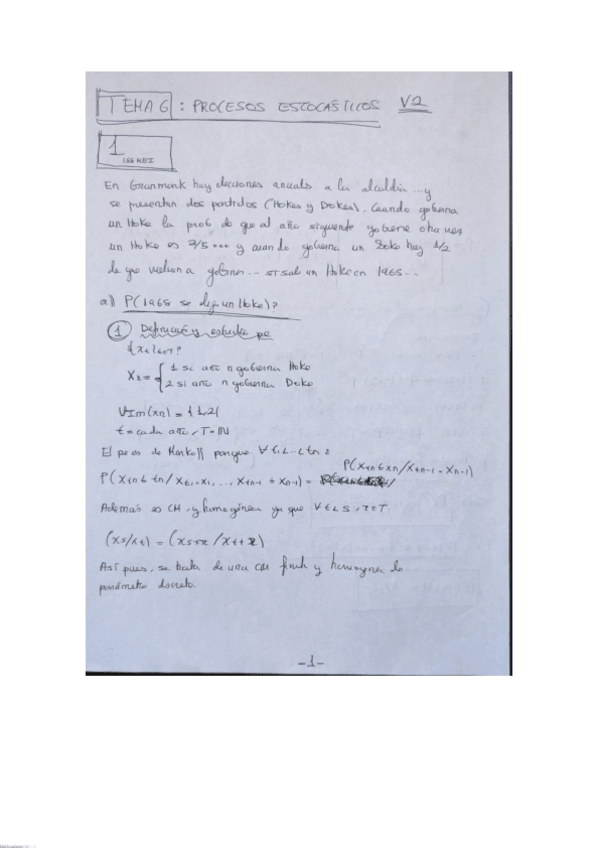 TEMA 6: PROCESOS ESTOCÁSTICOS V2
1
En Granmonk hay elecciones anuales a la alcaldía ... y
se presentan dos partidos (Hokes y Dokes). Cuando gobierna
un Hoke la prob de que al año siguiente gobierne otra vez
un Hoke es ... y cuando gobierna un Doke hay 1/2
de que vuelvan a gobernar ... si sale un Hoke en 1965 ..
a) P(1968 se elija un Hoke)?
1 Definición y estudio pe
{xt}t∈T?
Xn = { 1 si año n gobierna Hoke
2 si año n gobierna Doke
VIm(xn) = {1,2}
t = cada año, T = IN
El peos de Markoff porque ∀ t1 < .. < tn :
P(Xtn ≤ tn / Xt1 = x1, ..., Xtn-1 = xn-1) = P(Xtn ≤ xn/Xtn-1 = xn-1)
Además es CM y homogénea ya que ∀ t < s, z ∈ T
(xs/xt) = (xs+z / xt+z)
Así pues, se trata de una CM finita y homogénea de
parámetro discreto.
-1-